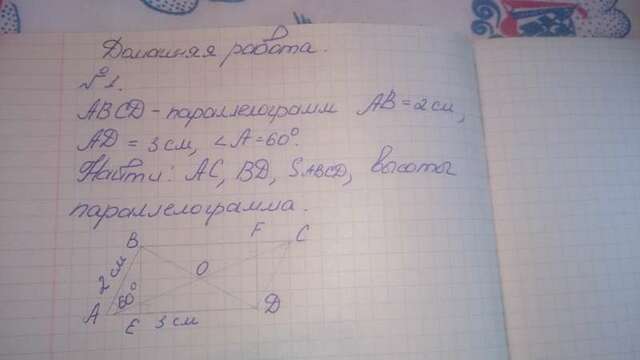 Домашняя работа.
№1.
ABCD - параллелограмм AB = 2 см,
AD = 3 см, ∠A = 60°.
Найти: AC, BD, SABCD, высоты
параллелограмма.
B F C
2 см O
60°
A E 3 см D